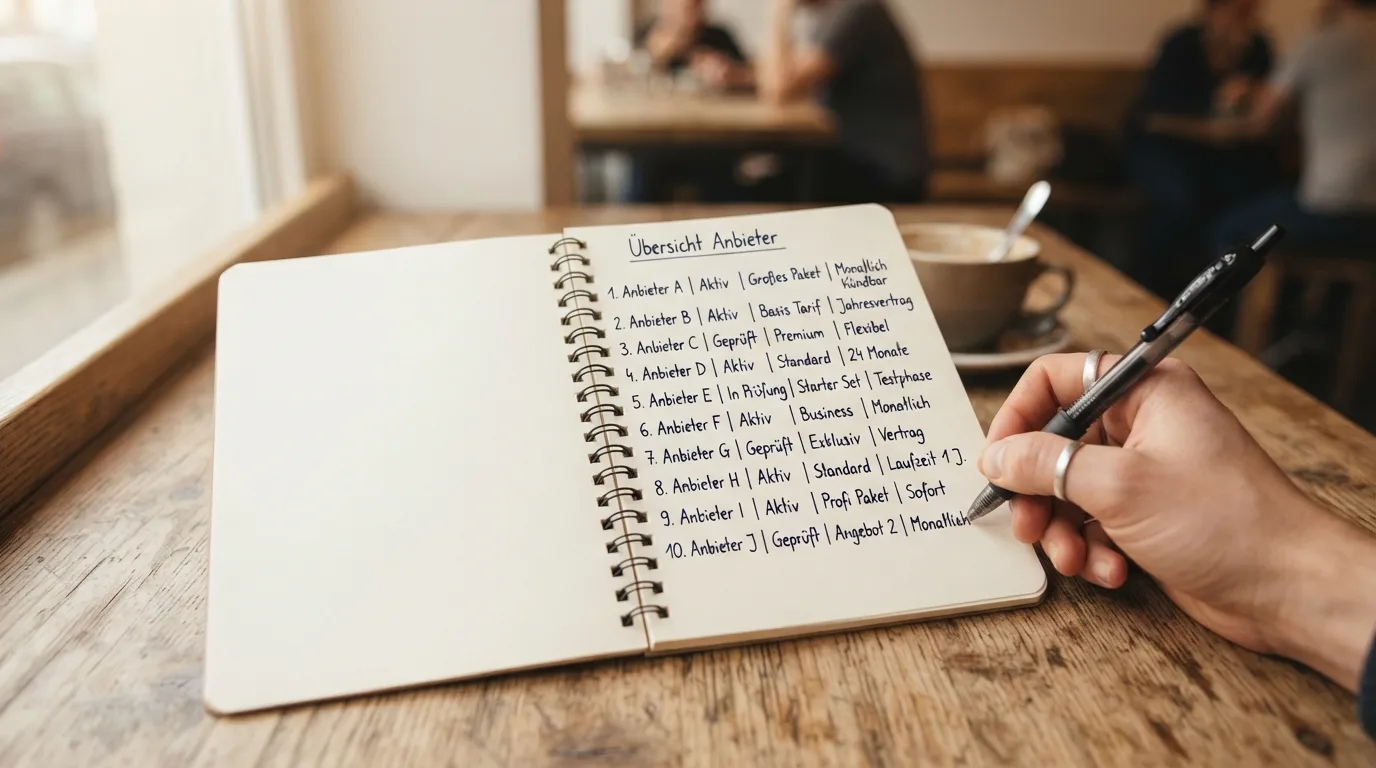 Übersicht Anbieter
1. Anbieter A | Aktiv | Großes Paket | Monatlich
Kündbar
2. Anbieter B | Aktiv | Basis Tarif | Jahresvertrag
3. Anbieter C | Geprüft | Premium | Flexibel
4. Anbieter D | Aktiv | Standard | 24 Monate
5. Anbieter E | In Prüfung | Starter Set | Testphase
6. Anbieter F | Aktiv | Business | Monatlich
7. Anbieter G | Geprüft | Exklusiv | Vertrag
8. Anbieter H | Aktiv | Standard | Laufzeit 1 J.
9. Anbieter I | Aktiv | Profi Paket | Sofort
10. Anbieter J | Geprüft | Angebot 2 | Monatlich